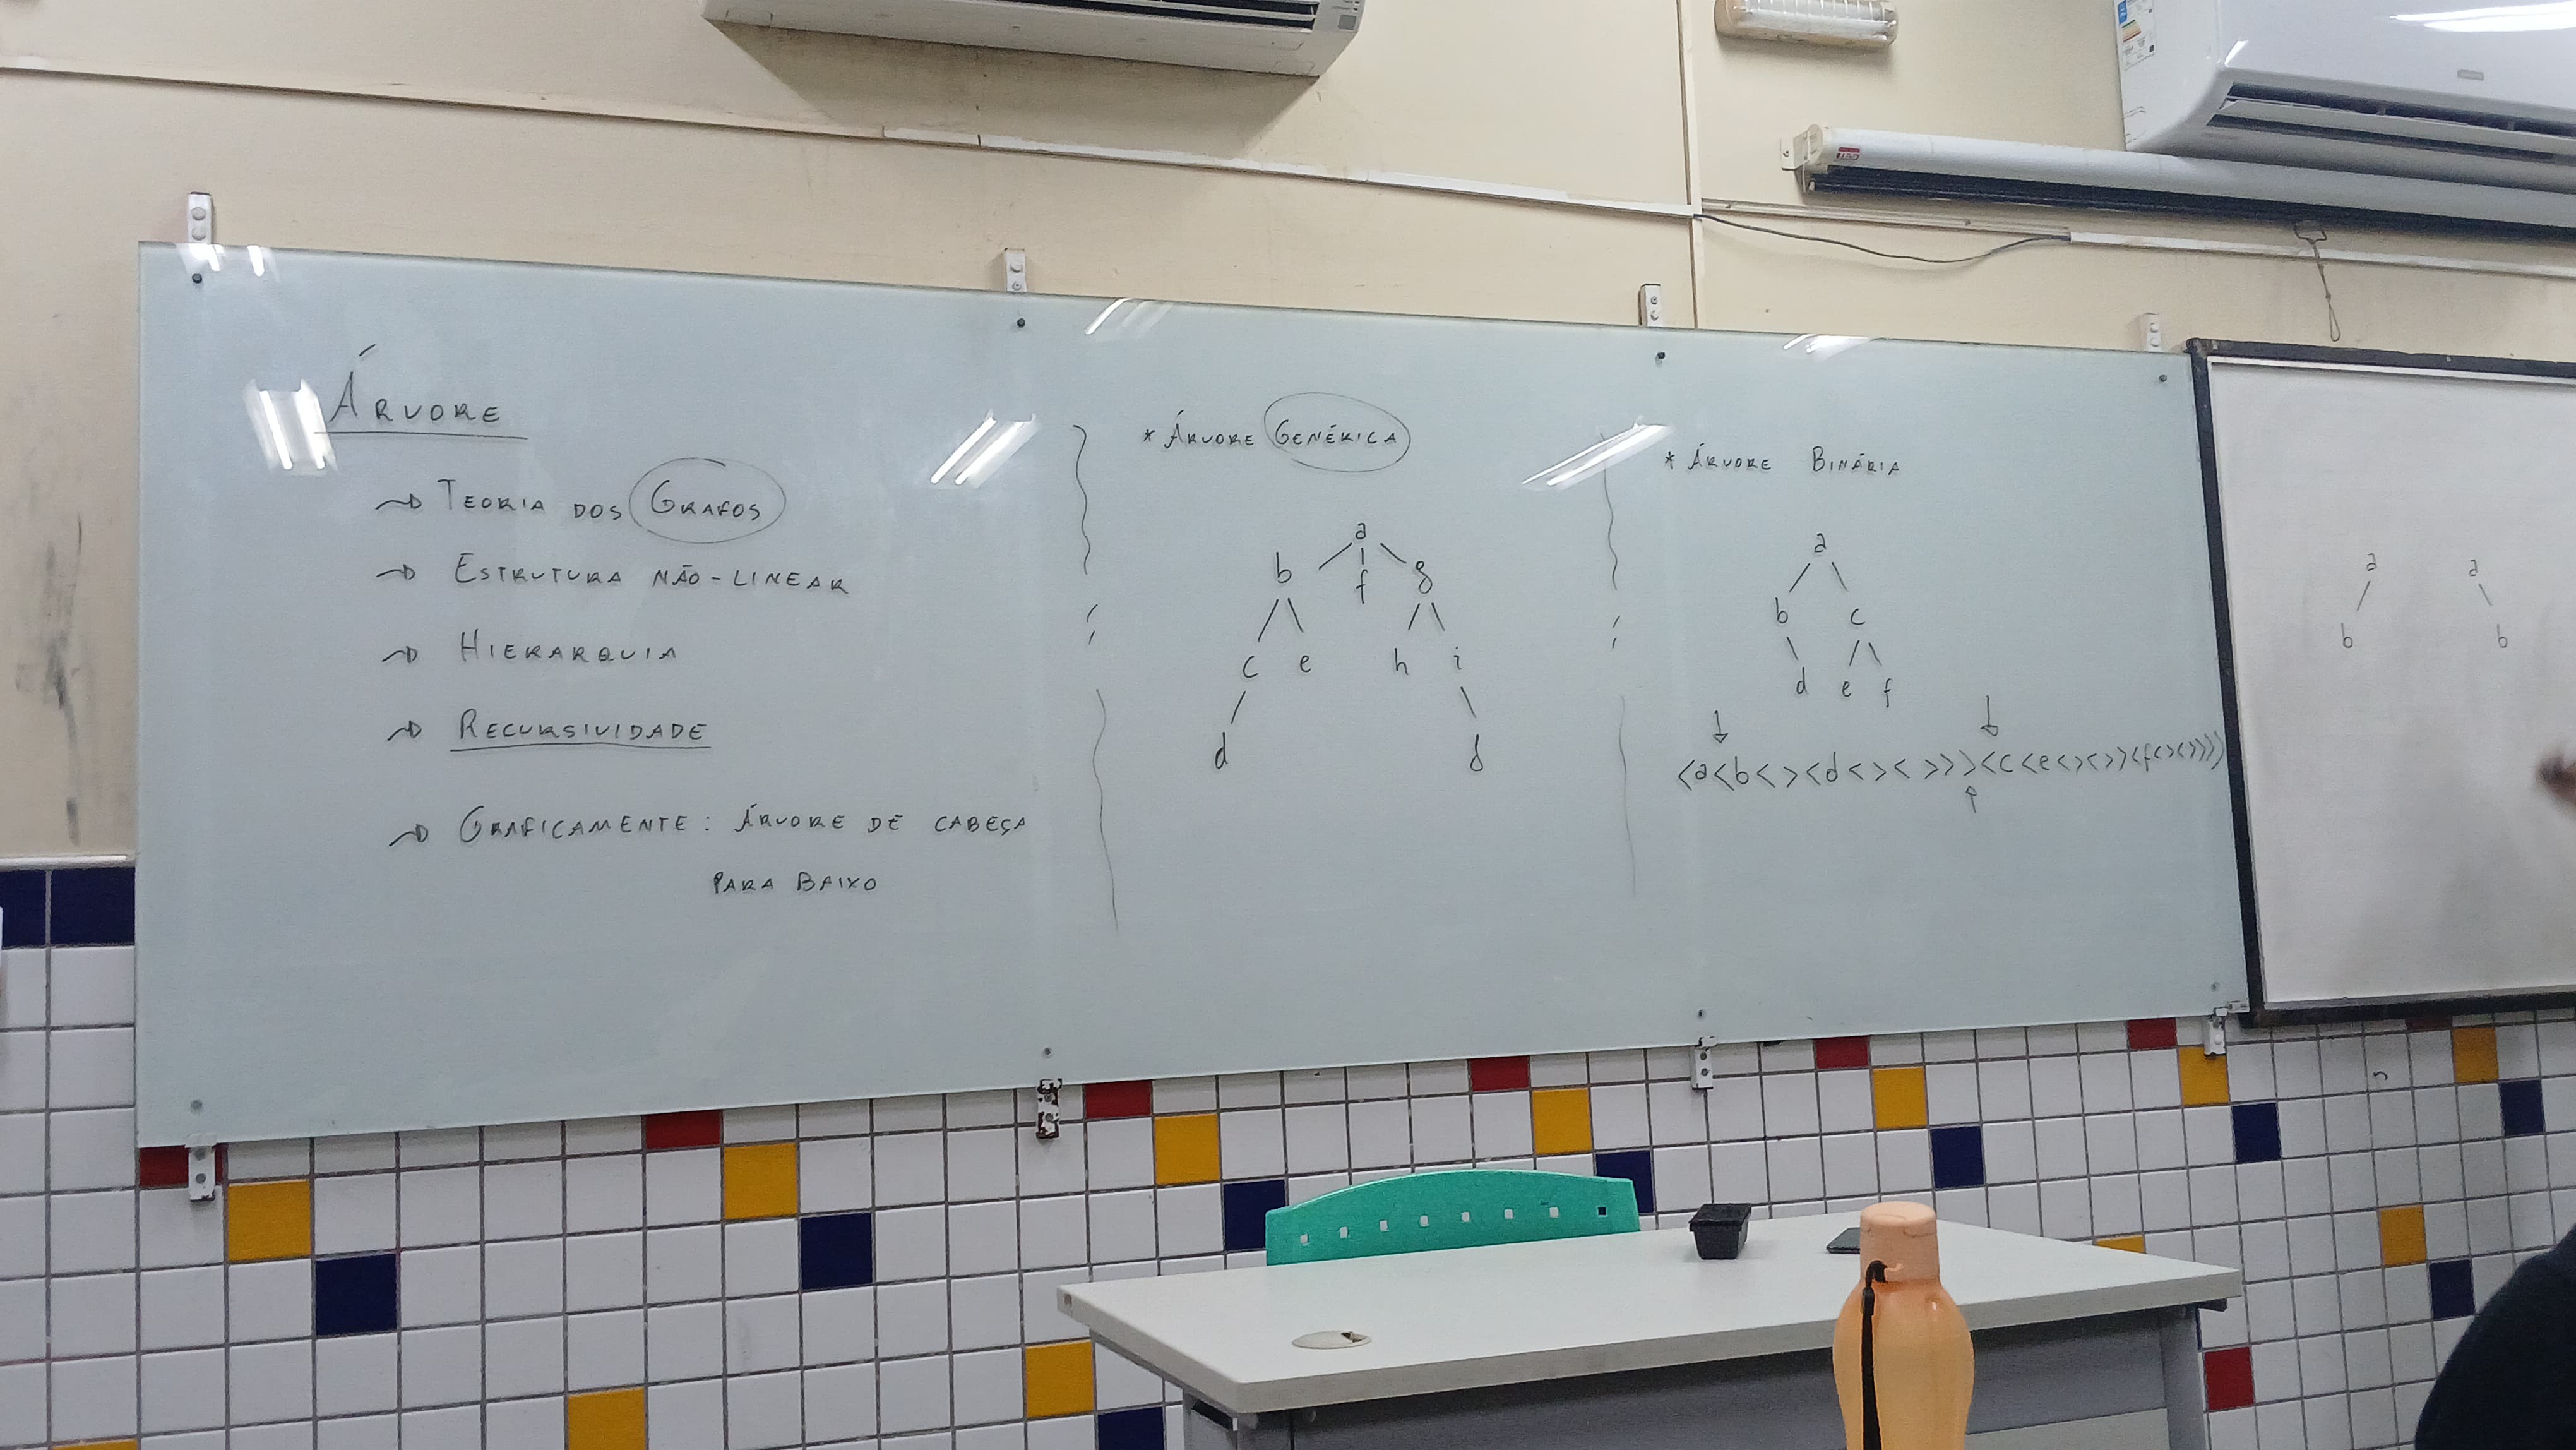 ÁRVORE
TEORIA DOS GRAFOS
ESTRUTURA NÃO-LINEAR
HIERARQUIA
RECURSIVIDADE
GRAFICAMENTE: ÁRVORE DE CABEÇA
PARA BAIXO
* ÁRVORE GENÉRICA
a
b f g
c e h i
d j
* ÁRVORE BINÁRIA
a
b c
d e f
<a<b<><d<><>>><c<e<><>><f<><>>>>
a a
b b